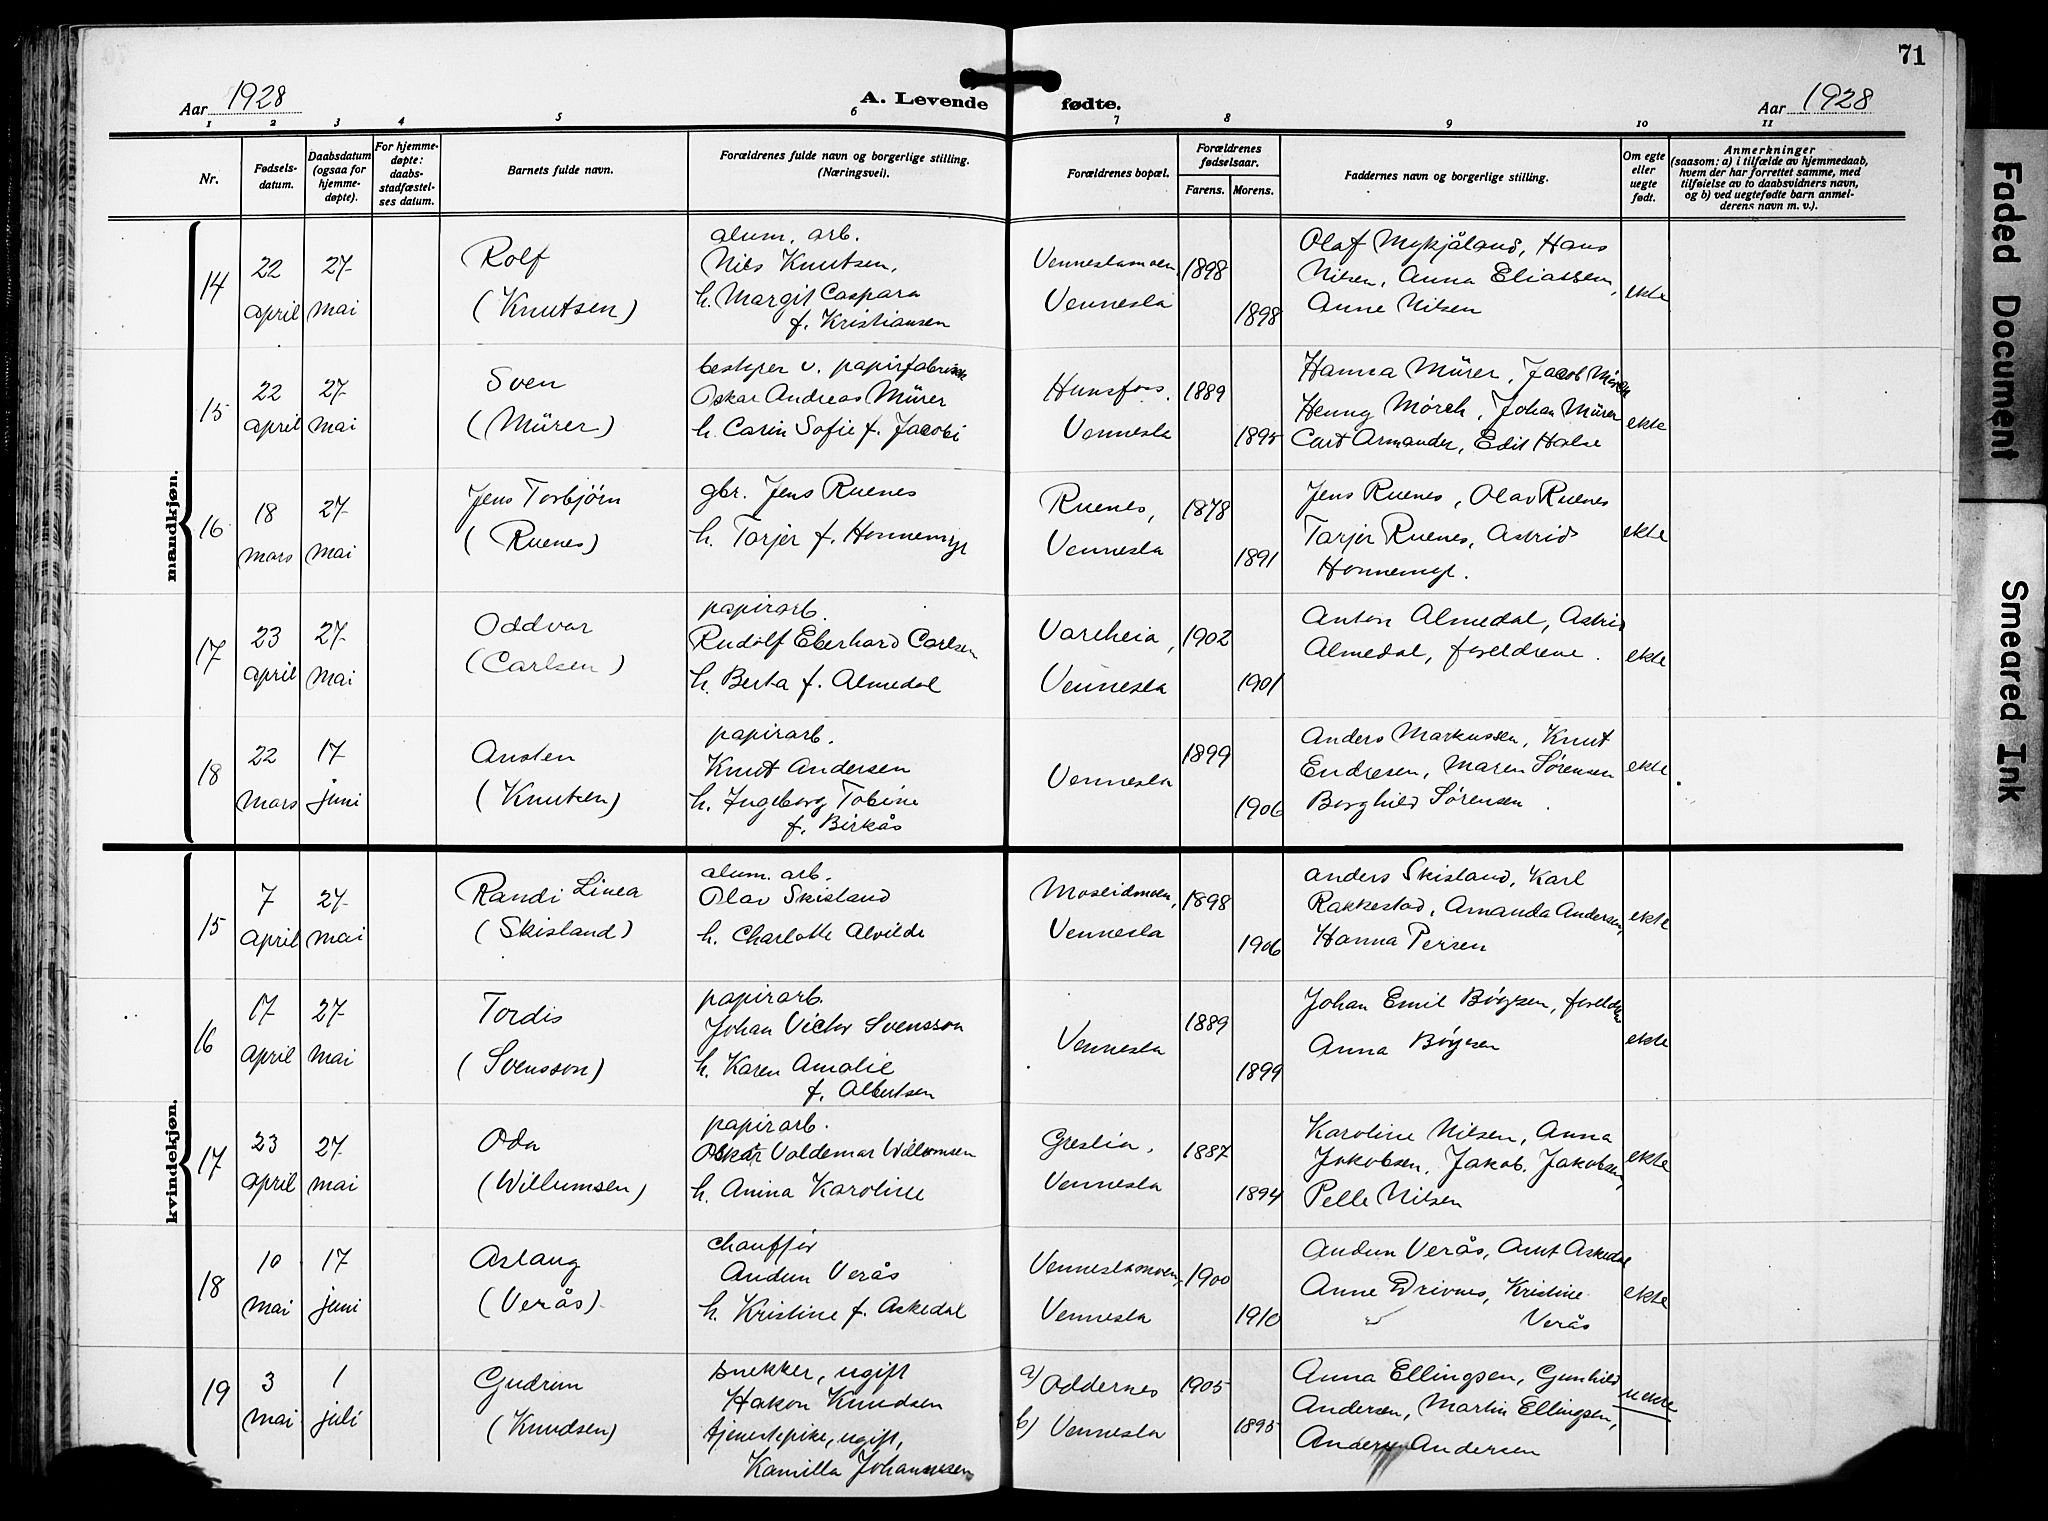 71
Aar 1928
A. Levende fødte.
Aar 1928
1 2 3 4 5 6 7 8 9 10 11
Nr.
Fødsels-
datum.
Daabsdatum
(ogsaa for
hjemme-
døpte).
For hjemme-
døpte:
daabs-
stadfæstel-
ses datum.
Barnets fulde navn.
Forældrenes fulde navn og borgerlige stilling.
(Næringsvei).
Forældrenes bopæl.
Forældrenes
fødselsaar.
Farens. Morens.
Faddernes navn og borgerlige stilling.
Om egte
eller
uegte
født.
Anmerkninger
(saasom: a) i tilfælde av hjemmedaab,
hvem der har forrettet samme, med
tilføielse av to daabsvidners navn,
og b) ved uegtefødte barn anmel-
derens navn m. v.).
mandkjøn.
14
22
april
27
mai
Rolf
(Knutsen)
alum. arb.
Nils Knutsen,
h. Margit Caspara
f. Kristiansen
Venneslamoen,
Vennesla
1898
1898
Olaf Mykjåland, Hans
Nilsen, Anna Eliassen,
Anne Nilsen
ekte
15
22
april
27
mai
Sven
(Mürer)
bestyrer v. papirfabrikk
Oskar Andreas Mürer
h. Carin Sofie f. Jacobi
Hunsfoss,
Vennesla
1889
1895
Hanna Mürer, Jacob Mörch
Henny Mörch, Johan Mürer
Carl Armander, Edit Halse
ekte
16
18
mars
27
mai
Jens Torbjörn
(Ruenes)
gbr. Jens Ruenes
h. Tarjer f. Honnemyr
Ruenes,
Vennesla
1878
1891
Jens Ruenes, Olav Ruenes
Tarjer Ruenes, Astrid
Honnemyr.
ekte
17
23
april
27
mai
Oddvar
(Carlsen)
papirarb.
Rudolf Eberhard Carlsen
h. Berta f. Almedal
Vareheia,
Vennesla
1902
1901
Anton Almedal, Astrid
Almedal, foreldrene.
ekte
18
22
mars
17
juni
Austen
(Knutsen)
papirarb.
Knut Andersen
h. Ingeborg Tobine
f. Birkås
Vennesla
1899
1906
Anders Markussen, Knut
Endresen, Maren Sørensen
Borghild Sørensen.
ekte
kvindekjøn.
15
7
april
27
mai
Randi Linea
(Skisland)
alum. arb.
Olav Skisland
h. Charlotte Alvilde
Moseidmoen,
Vennesla
1898
1906
Anders Skisland, Karl
Rakkestad, Amanda Andersen,
Hanna Persen
ekte
16
17
april
27
mai
Tordis
(Svensson)
papirarb.
Johan Victor Svensson
h. Karen Amalie
f. Albertsen
Vennesla
1889
1899
Johan Emil Bøyesen, foreldrene
Anna Bøyesen
ekte
17
23
april
27
mai
Oda
(Willumsen)
papirarb.
Oskar Valdemar Willumsen
h. Anina Karoline
Greslia,
Vennesla
1887
1894
Karoline Nilsen, Anna
Jakobsen, Jakob Jakobsen,
Pelle Nilsen
ekte
18
10
mai
17
juni
Aslaug
(Verås)
chauffør
Audun Verås
h. Kristine f. Askedal
Venneslamoen,
Vennesla
1900
1910
Audun Verås, Arnt Askedal
Anne Drivnes, Kristine
Verås
ekte
19
3
mai
1
juli
Gudrun
(Knudsen)
snekker, ugift
Hakon Knudsen
tjenestepike, ugift,
Kamilla Johannesen
a) Oddernes
b) Vennesla
1905
1895
Anna Ellingsen, Gunhild
Andersen, Martin Ellingsen,
Anders Andersen
uekte
Faded Document
Smeared Ink